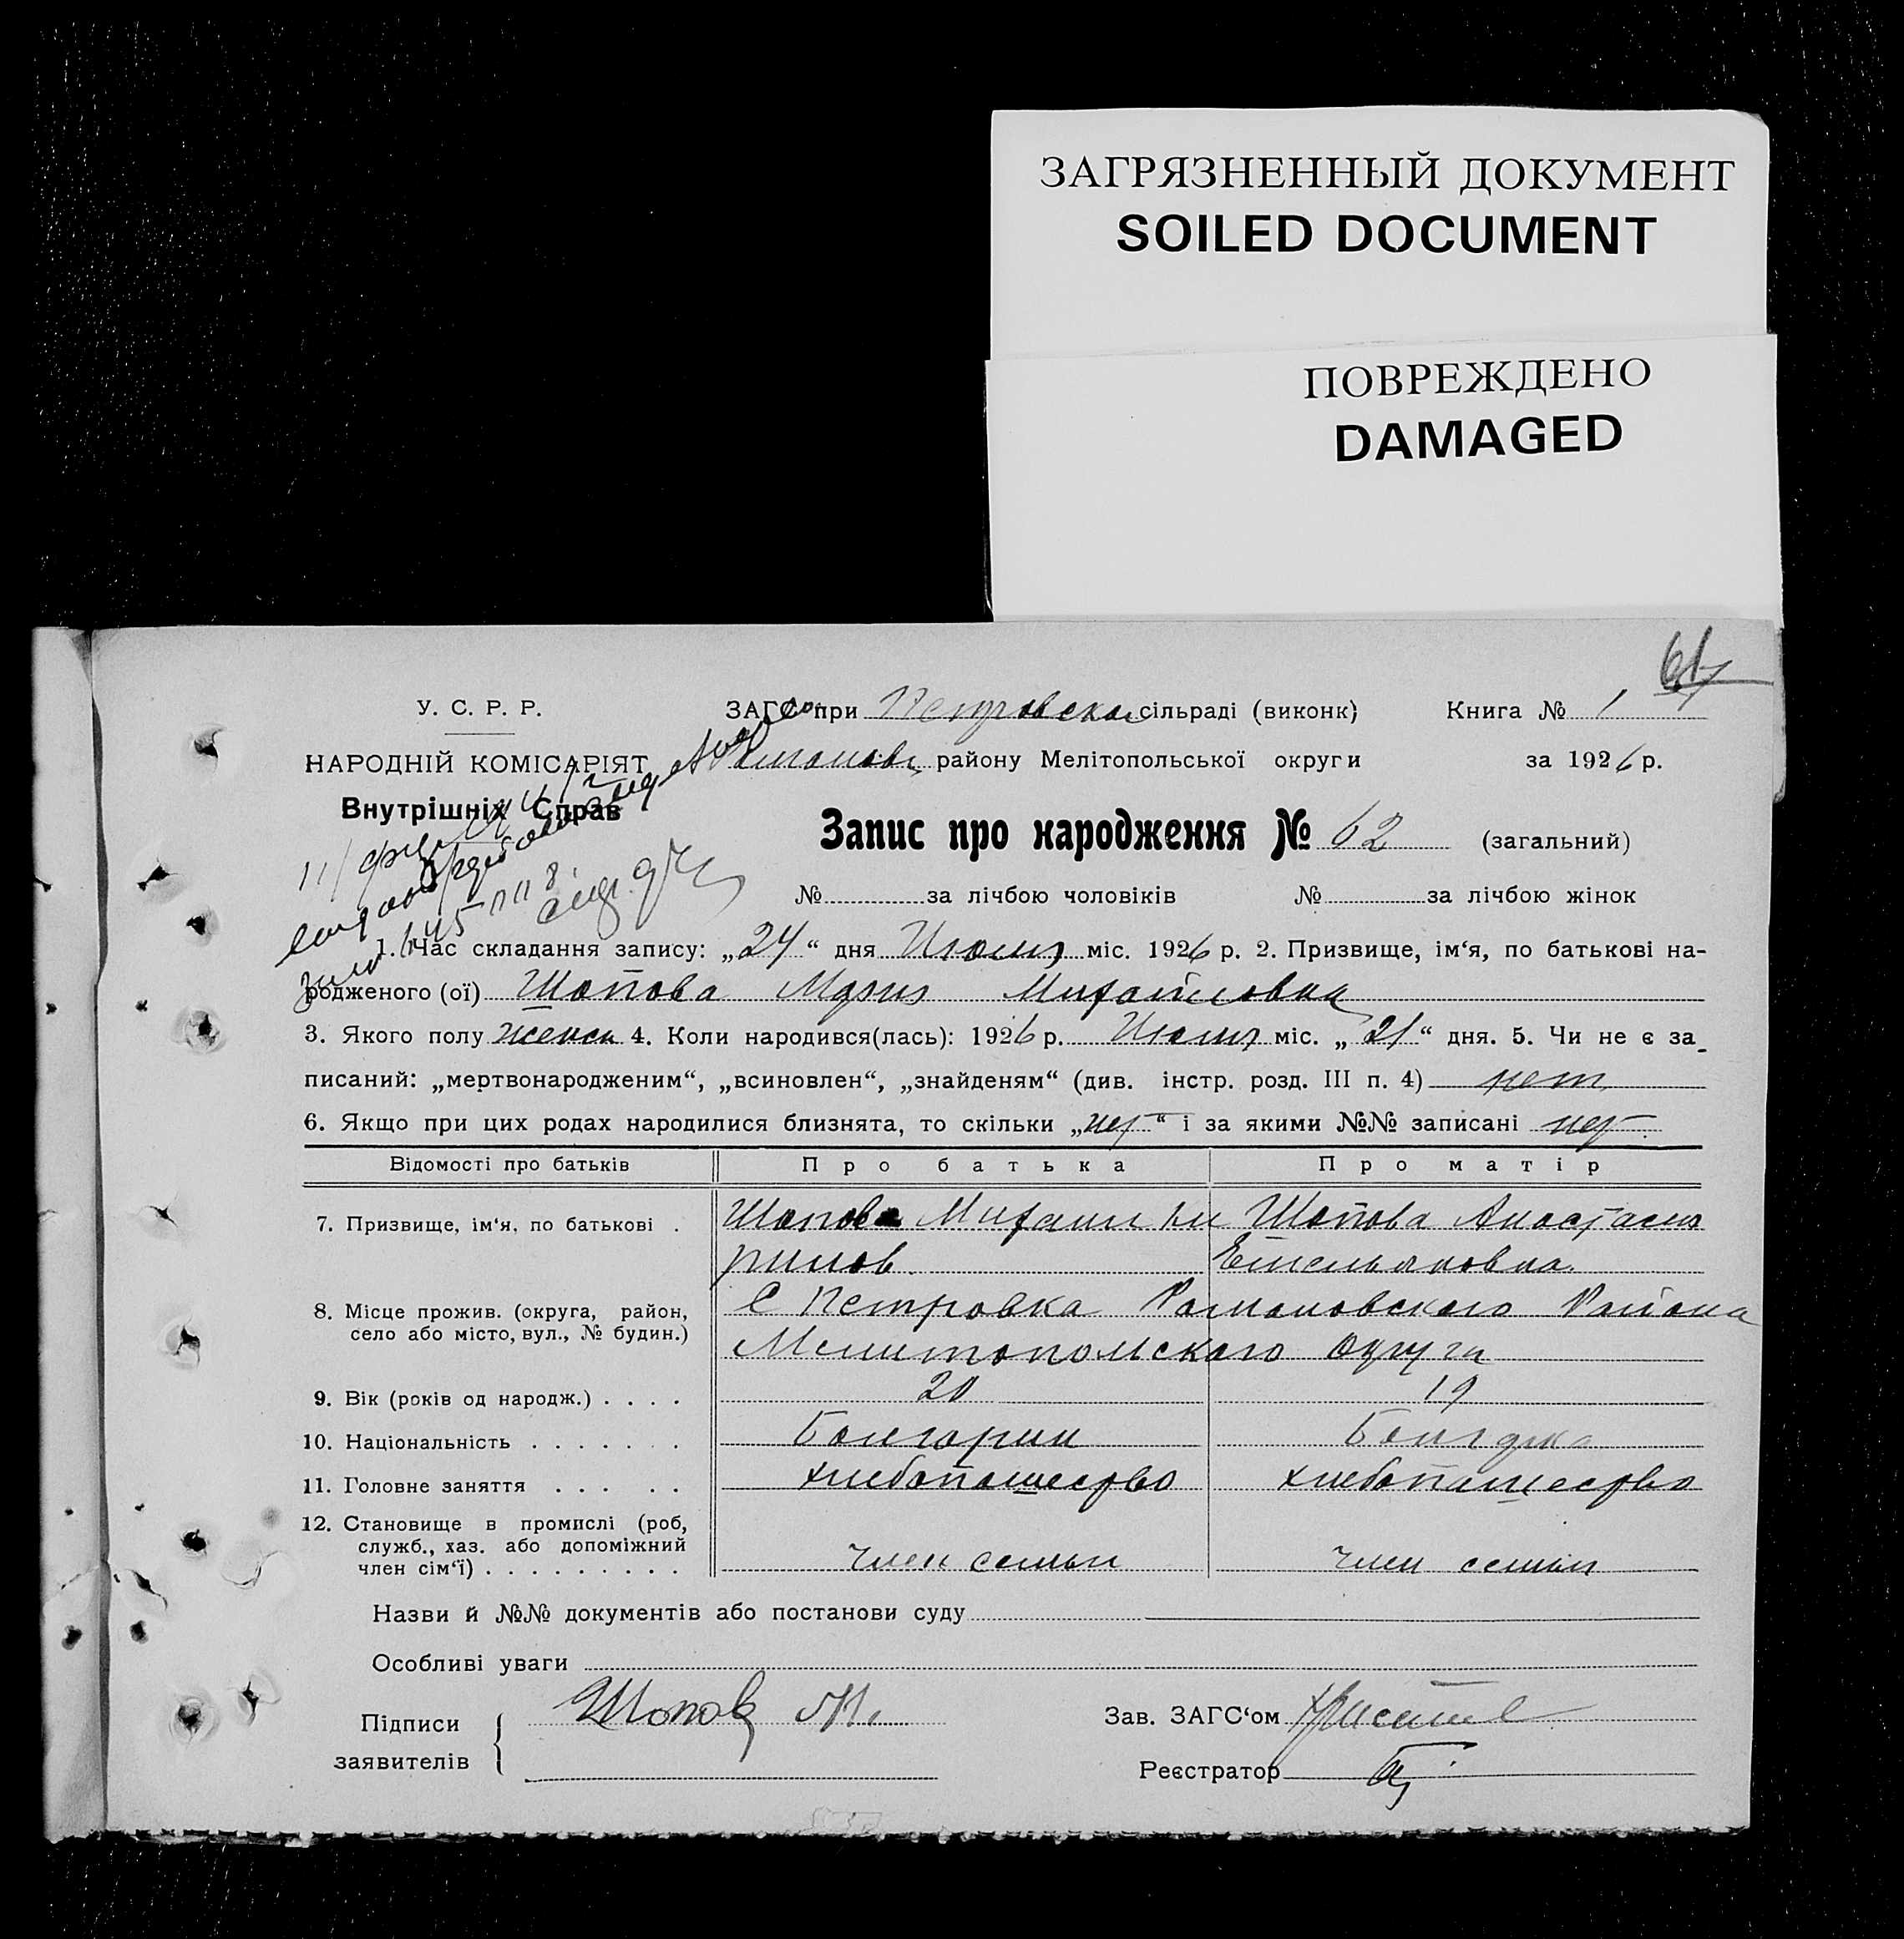 ЗАГРЯЗНЕННЫЙ ДОКУМЕНТ
SOILED DOCUMENT
ПОВРЕЖДЕНО
DAMAGED
61
У. С. Р. Р.
НАРОДНІЙ КОМІСАРІЯТ
Внутрішніх Справ
ЗАГС при Петровской сільраді (виконк) Книга № 1
Романовс району Мелітопольської округи за 1926 р.
Запис про народження № 62 (загальний)
№ за лічбою чоловіків № за лічбою жінок
1. Час складання запису: „24“ дня Июля міс. 1926 р. 2. Призвище, ім‘я, по батькові на-
родженого (ої) Шопова Мария Михайловна
3. Якого полу женск 4. Коли народився(лась): 1926 р. Июля міс. „21“ дня. 5. Чи не є за-
писаний: „мертвонародженим“, „всиновлен“, „знайденям“ (див. інстр. розд. III п. 4) нет
6. Якщо при цих родах народилися близнята, то скільки „нет“ і за якими №№ записані нет
Відомості про батьків Про батька Про матір
7. Призвище, ім‘я, по батькові . Шопов Михаил Ки Шопова Анастасия
рилов. Емельяновна
8. Місце прожив. (округа, район, село або місто, вул., № будин.) С Петровка Романовского Района
Мелитопольского округи
9. Вік (років од народж.) . . . . 20 19
10. Національність . . . . . . . Болгарин Болгарка
11. Головне заняття . . . . . хлебопашество хлебопашество
12. Становище в промислі (роб,
служб., хаз. або допоміжний
член сім‘ї) . . . . . . . . . член семьи член семьи
Назви й №№ документів або постанови суду
Особливі уваги
Підписи заявителів Шопов М.
Зав. ЗАГС‘ом
Реєстратор